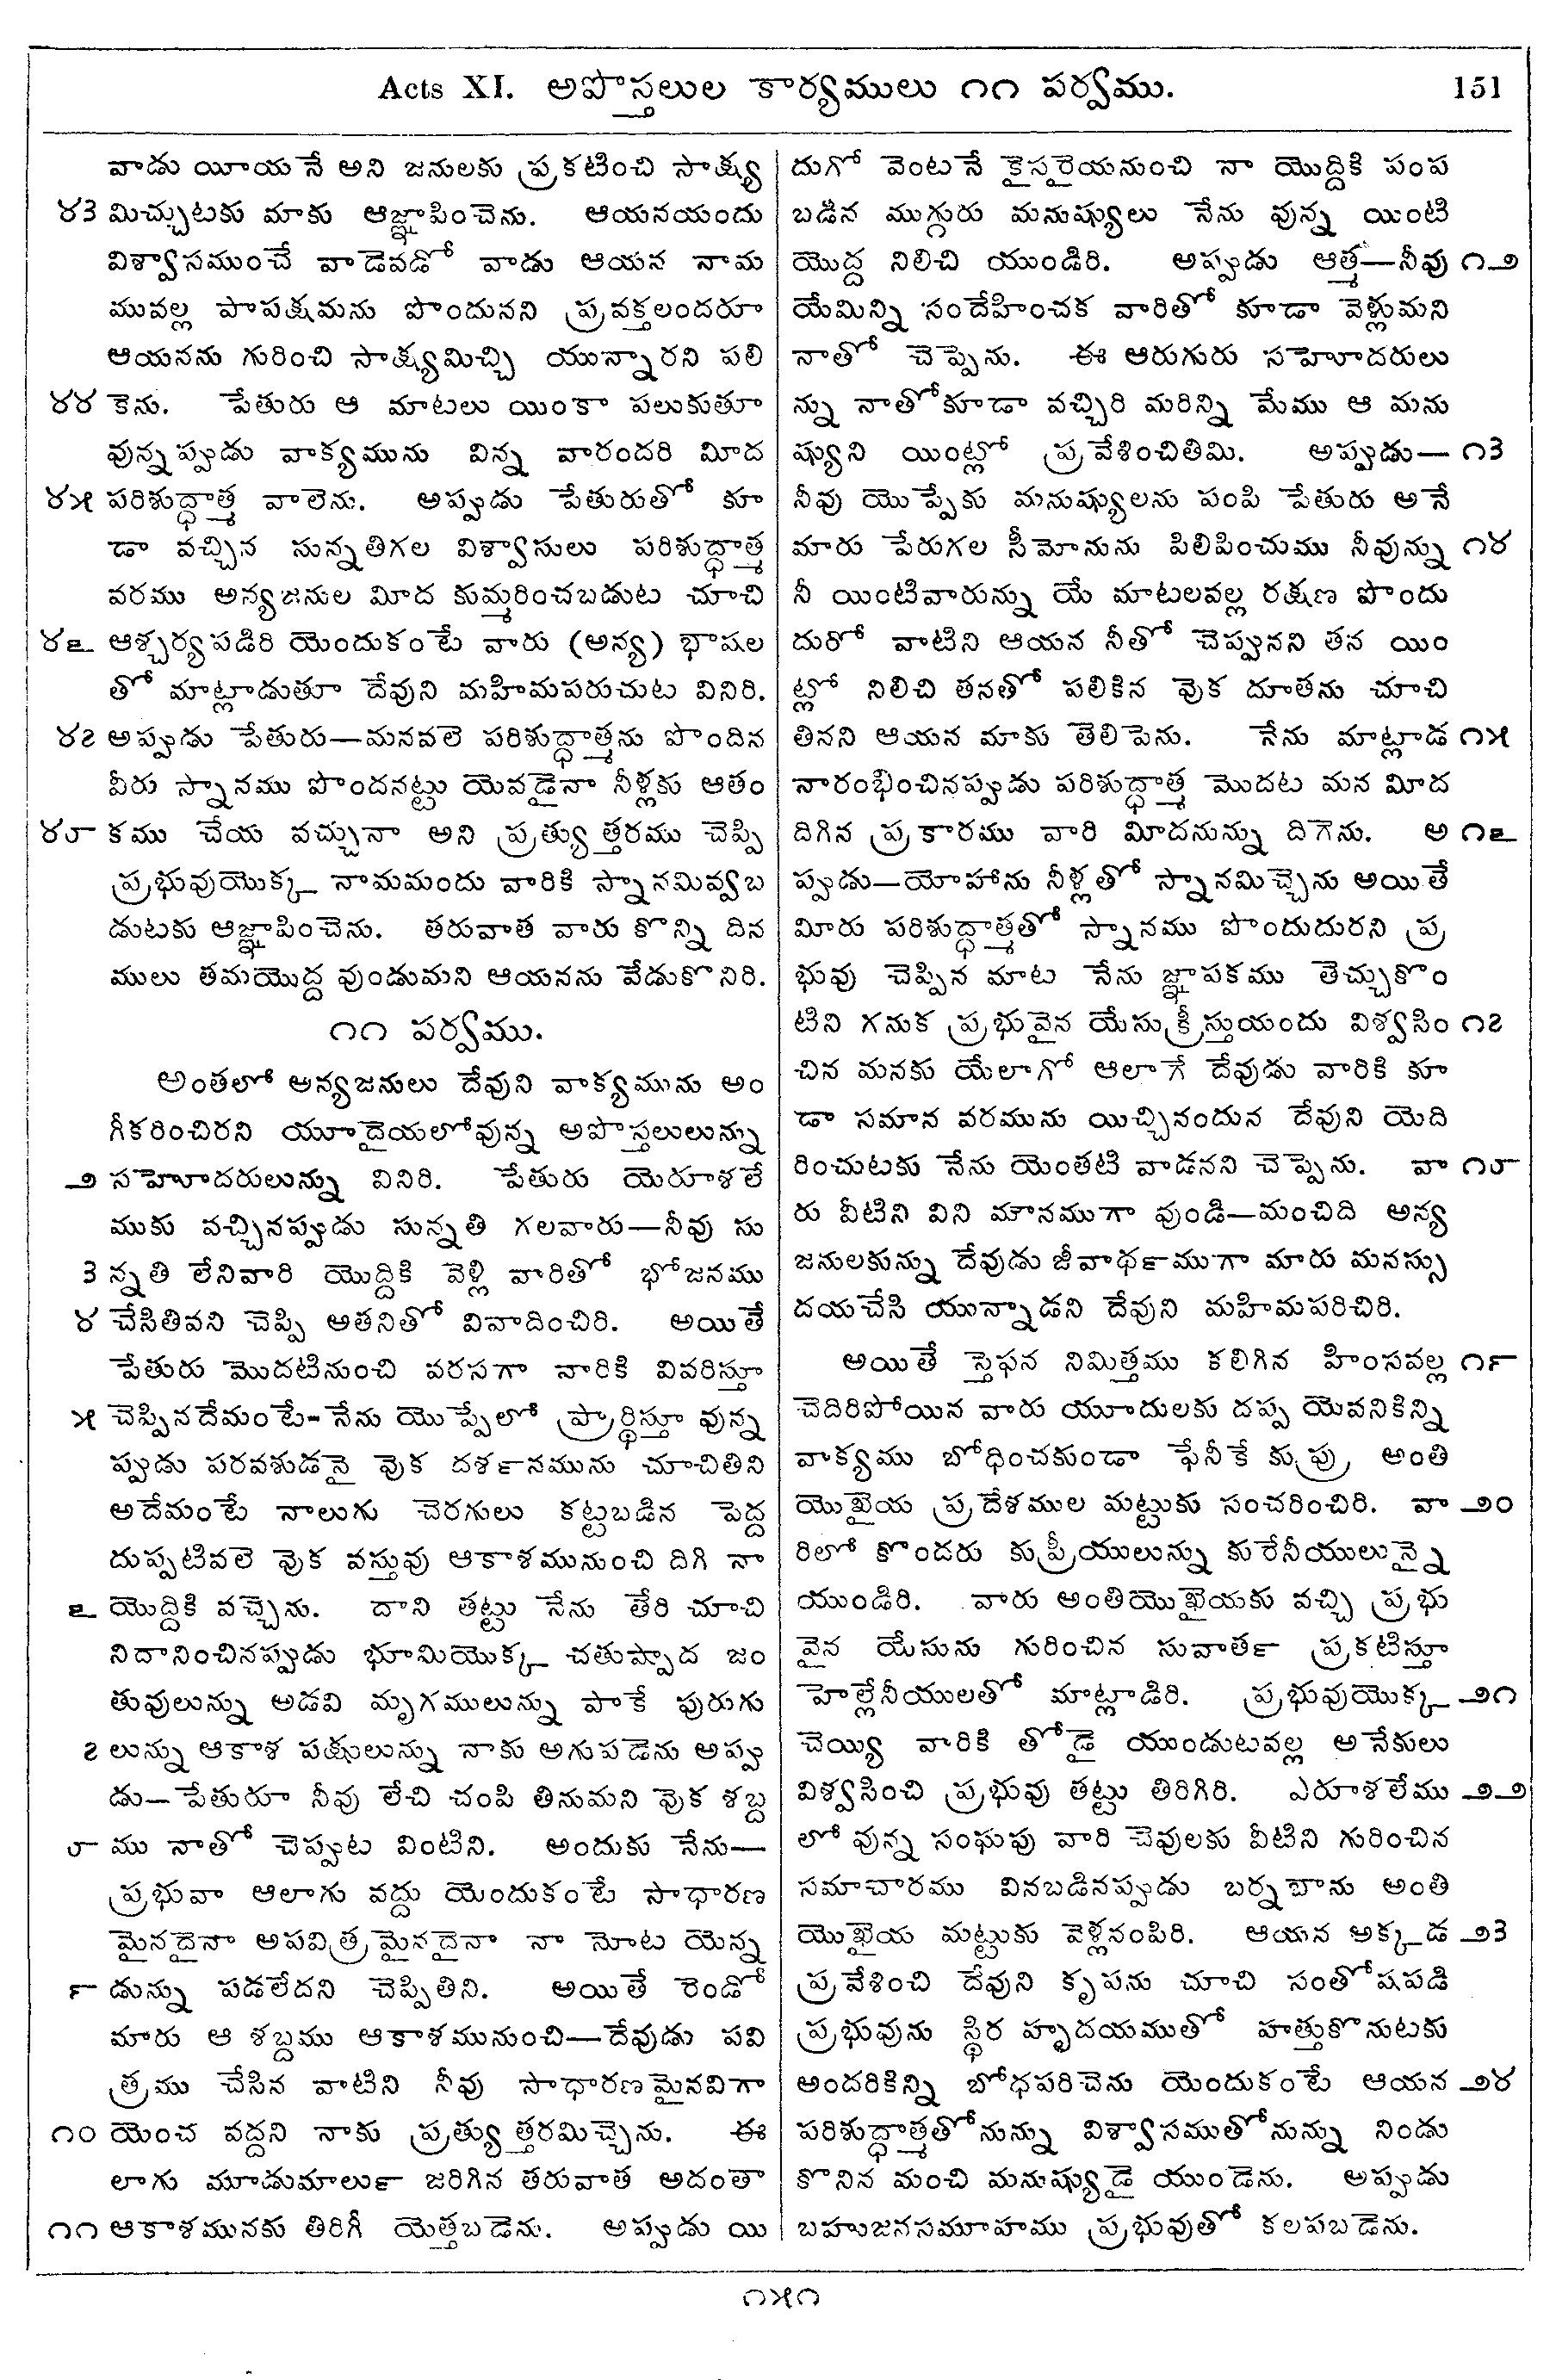 Acts XI. అపొస్తలుల కార్యములు ౧౧ పర్వము. 151
వాడు యీయనే అని జనులకు ప్రకటించి సాక్ష్య
౪౩ మిచ్చుటకు మాకు ఆజ్ఞాపించెను. ఆయనయందు
విశ్వాసముంచే వాడెవడో వాడు ఆయన నామ
మువల్ల పాపక్షమను పొందునని ప్రవక్తలందరూ
ఆయనను గురించి సాక్ష్యమిచ్చి యున్నారని పలి
౪౪ కెను. పేతురు ఆ మాటలు యింకా పలుకుతూ
వున్నప్పుడు వాక్యమును విన్న వారందరి మీద
౪౫ పరిశుద్ధాత్మ వాలెను. అప్పుడు పేతురుతో కూ
డా వచ్చిన సున్నతిగల విశ్వాసులు పరిశుద్ధాత్మ
వరము అన్యజనుల మీద కుమ్మరించబడుట చూచి
౪౬ ఆశ్చర్యపడిరి యెందుకంటే వారు (అన్య) భాషల
తో మాట్లాడుతూ దేవుని మహిమపరుచుట వినిరి.
౪౭ అప్పుడు పేతురు—మనవలె పరిశుద్ధాత్మను పొందిన
వీరు స్నానము పొందనట్టు యెవడైనా నీళ్లకు ఆతం
౪౮ కము చేయ వచ్చునా అని ప్రత్యుత్తరము చెప్పి
ప్రభువుయొక్క నామమందు వారికి స్నానమివ్వబ
డుటకు ఆజ్ఞాపించెను. తరువాత వారు కొన్ని దిన
ములు తమయొద్ద వుండుమని ఆయనను వేడుకొనిరి.
౧౧ పర్వము.
అంతలో అన్యజనులు దేవుని వాక్యమును అం
గీకరించిరని యూదైయలోవున్న అపొస్తలులున్ను
౨ సహోదరులున్ను వినిరి. పేతురు యెరూశలే
ముకు వచ్చినప్పుడు సున్నతి గలవారు—నీవు సు
౩ న్నతి లేనివారి యొద్దికి వెళ్లి వారితో భోజనము
౪ చేసితివని చెప్పి అతనితో వివాదించిరి. అయితే
పేతురు మొదటినుంచి వరసగా వారికి వివరిస్తూ
౫ చెప్పినదేమంటే-నేను యొప్పేలో ప్రార్థిస్తూ వున్న
ప్పుడు పరవశుడనై వుక దర్శనమును చూచితిని
అదేమంటే నాలుగు చెరగులు కట్టబడిన పెద్ద
దుప్పటివలె వుక వస్తువు ఆకాశమునుంచి దిగి నా
౬ యొద్దికి వచ్చెను. దాని తట్టు నేను తేరి చూచి
నిదానించినప్పుడు భూమియొక్క చతుష్పాద జం
తువులున్ను అడవి మృగములున్ను పాకే పురుగు
౭ లున్ను ఆకాశ పక్షులున్ను నాకు అగుపడెను అప్పు
డు—పేతురూ నీవు లేచి చంపి తినుమని వుక శబ్ద
౮ ము నాతో చెప్పుట వింటిని. అందుకు నేను—
ప్రభువా ఆలాగు వద్దు యెందుకంటే సాధారణ
మైనదైనా అపవిత్రమైనదైనా నా నోట యెన్న
౯ డున్ను పడలేదని చెప్పితిని. అయితే రెండో
మారు ఆ శబ్దము ఆకాశమునుంచి—దేవుడు పవి
త్రము చేసిన వాటిని నీవు సాధారణమైనవిగా
౧౦ యెంచ వద్దని నాకు ప్రత్యుత్తరమిచ్చెను. ఈ
లాగు మూడుమార్లు జరిగిన తరువాత అదంతా
౧౧ ఆకాశమునకు తిరిగీ యెత్తబడెను. అప్పుడు యి
దుగో వెంటనే కైసరైయనుంచి నా యొద్దికి పంప
బడిన ముగ్గురు మనుష్యులు నేను వున్న యింటి
యొద్ద నిలిచి యుండిరి. అప్పుడు ఆత్మ—నీవు ౧౨
యేమిన్ని సందేహించక వారితో కూడా వెళ్లుమని
నాతో చెప్పెను. ఈ ఆరుగురు సహోదరులు
న్ను నాతోకూడా వచ్చిరి మరిన్ని మేము ఆ మను
ష్యుని యింట్లో ప్రవేశించితిమి. అప్పుడు— ౧౩
నీవు యొప్పేకు మనుష్యులను పంపి పేతురు అనే
మారు పేరుగల సీమోనును పిలిపించుము నీవున్ను ౧౪
నీ యింటివారున్ను యే మాటలవల్ల రక్షణ పొందు
దురో వాటిని ఆయన నీతో చెప్పునని తన యిం
ట్లో నిలిచి తనతో పలికిన వుక దూతను చూచి
తినని ఆయన మాకు తెలిపెను. నేను మాట్లాడ ౧౫
నారంభించినప్పుడు పరిశుద్ధాత్మ మొదట మన మీద
దిగిన ప్రకారము వారి మీదనున్ను దిగెను. అ ౧౬
ప్పుడు—యోహాను నీళ్లతో స్నానమిచ్చెను అయితే
మీరు పరిశుద్ధాత్మతో స్నానము పొందుదురని ప్ర
భువు చెప్పిన మాట నేను జ్ఞాపకము తెచ్చుకొం
టిని గనుక ప్రభువైన యేసుక్రీస్తుయందు విశ్వసిం ౧౭
చిన మనకు యేలాగో ఆలాగే దేవుడు వారికి కూ
డా సమాన వరమును యిచ్చినందున దేవుని యెది
రించుటకు నేను యెంతటి వాడనని చెప్పెను. వా ౧౮
రు వీటిని విని మౌనముగా వుండి—మంచిది అన్య
జనులకున్ను దేవుడు జీవార్థముగా మారు మనస్సు
దయచేసి యున్నాడని దేవుని మహిమపరిచిరి.
అయితే స్తెఫన నిమిత్తము కలిగిన హింసవల్ల ౧౯
చెదిరిపోయిన వారు యూదులకు దప్ప యెవనికిన్ని
వాక్యము బోధించకుండా ఫేనీకే కుప్రు అంతి
యొఖైయ ప్రదేశముల మట్టుకు సంచరించిరి. వా ౨౦
రిలో కొందరు కుప్రీయులున్ను కురేనీయులున్నై
యుండిరి. వారు అంతియొఖైయకు వచ్చి ప్రభు
వైన యేసును గురించిన సువార్త ప్రకటిస్తూ
హెల్లేనీయులతో మాట్లాడిరి. ప్రభువుయొక్క ౨౧
చెయ్యి వారికి తోడై యుండుటవల్ల అనేకులు
విశ్వసించి ప్రభువు తట్టు తిరిగిరి. ఎరూశలేము ౨౨
లో వున్న సంఘపు వారి చెవులకు వీటిని గురించిన
సమాచారము వినబడినప్పుడు బర్నబాను అంతి
యొఖైయ మట్టుకు వెళ్లనంపిరి. ఆయన అక్కడ ౨౩
ప్రవేశించి దేవుని కృపను చూచి సంతోషపడి
ప్రభువును స్థిర హృదయముతో హత్తుకొనుటకు
అందరికిన్ని బోధపరిచెను యెందుకంటే ఆయన ౨౪
పరిశుద్ధాత్మతోనున్ను విశ్వాసముతోనున్ను నిండు
కొనిన మంచి మనుష్యుడై యుండెను. అప్పుడు
బహుజనసమూహము ప్రభువుతో కలపబడెను.
౧౫౧